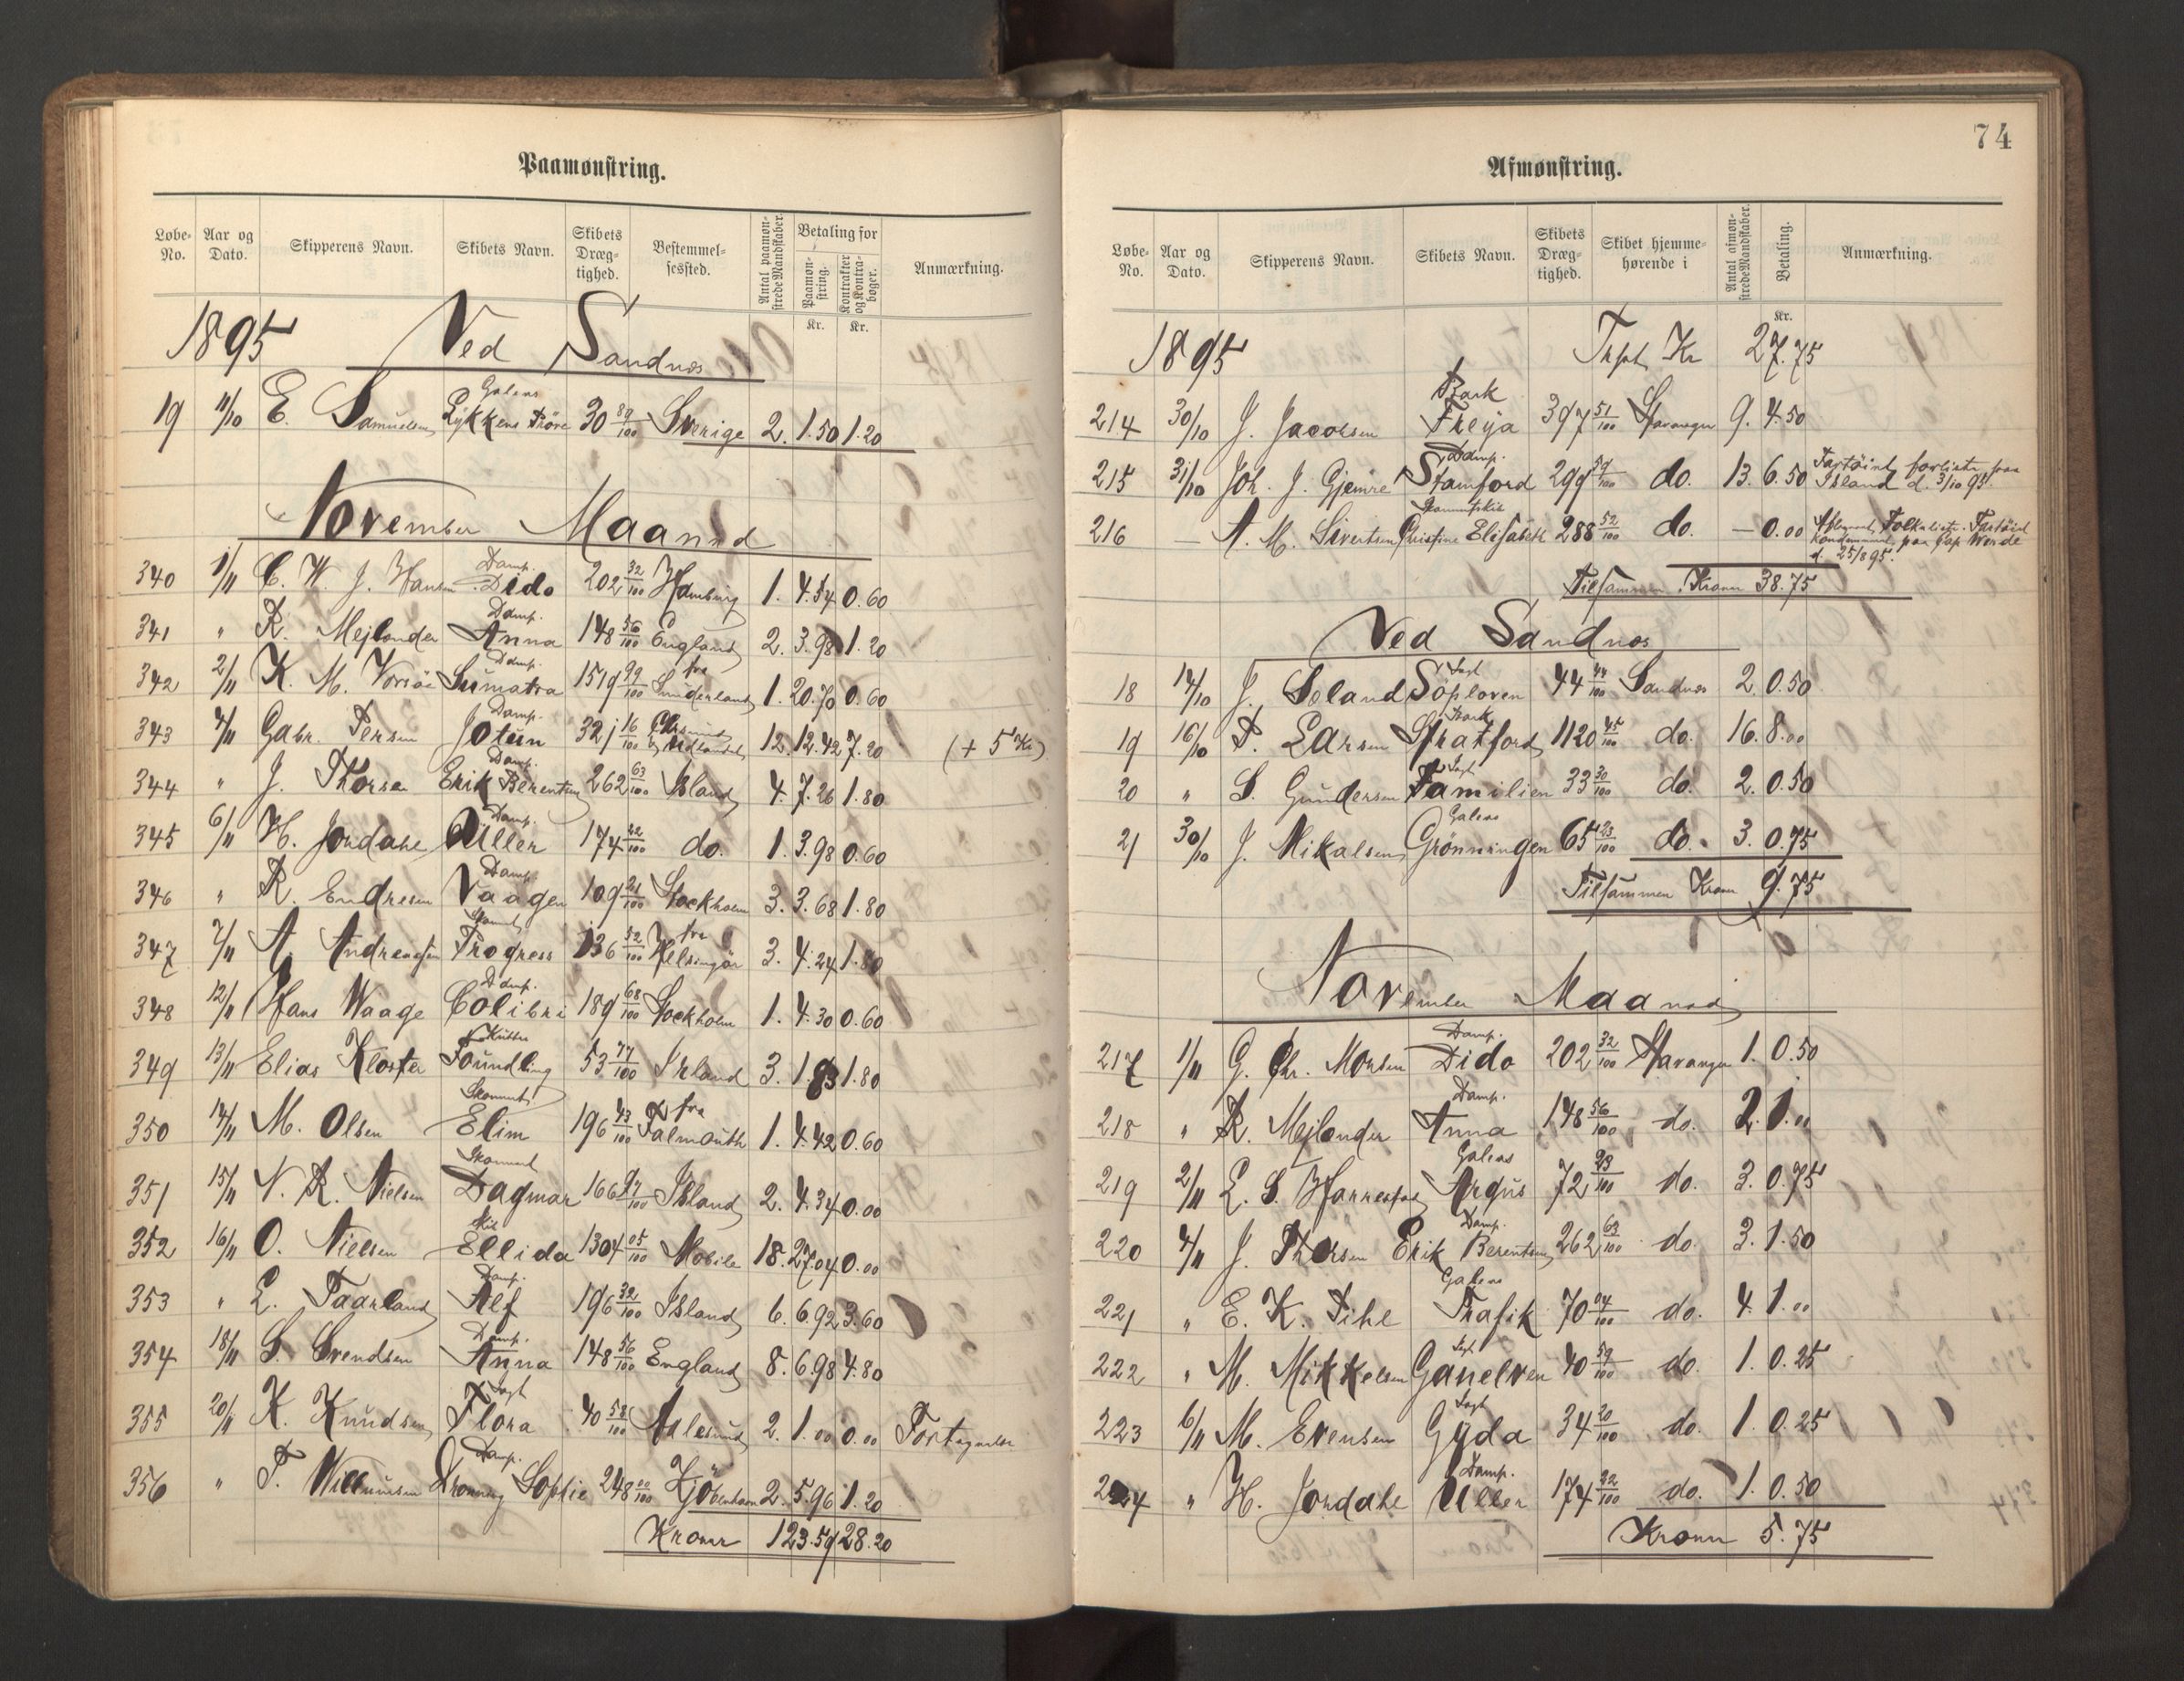 Paamønstring.
Løbe-No. Aar og Dato. Skipperens Navn. Skibets Navn. Skibets Dræg-tighed. Bestemmel-sessted. Antal paamøn-strede Mandskaber. Betaling for Paamøn-string. Kontrakter og Kontra-bøger. Anmærkning.
Kr. Kr.
1895 Ved Sandnæs
19 11/10 E. Samuelsen Galeas Lykkens Pröve 30 89/100 Sverige 2. 1.50 1.20
November Maaned
340 1/11 C. W. J. Hansen Damp. Dido 202 32/100 Hamburg 1. 4.54 0.60
341 " R. Mejlænder Damp. Anna 148 56/100 England 2. 3.98 1.20
342 2/11 K. M. Vorsöe Damp. Sumatra 1519 99/100 fra Sunderland 1. 20.70 0.60
343 4/11 Gabr. Persen Damp. Jotun 321 16/100 12. 12.42 7.20 (+ 5 Kr)
344 " J. Thorsen Damp. Erik Berentsen 262 63/100 Island 4. 7.26 1.80
345 6/11 H. Jordahl Damp. Uller 174 22/100 do. 1. 3.98 0.60
346 " R. Endresen Damp. Vaagen 109 21/100 Stockholm 3. 3.68 1.80
347 7/11 A. Andreasen Skonnert Progress 136 52/100 fra Helsingör 3. 4.24 1.80
348 12/11 Hans Waage Damp. Colibri 189 68/100 Stockholm 1. 4.30 0.60
349 13/11 Elias Kloster Kutter Foundling 53 77/100 Irland 3. 1.83 1.80
350 14/11 M. Olsen Skonnert Elim 196 43/100 fra Falmouth 1. 4.42 0.60
351 15/11 N. R. Nielsen Skonnert Dagmar 166 97/100 Island 2. 4.34 0.00
352 16/11 O. Nielsen Skib Ellida 1304 05/100 Mobile 18. 27.04 0.00
353 " L. Taarland Damp. Alf 196 32/100 Island 6. 6.92 3.60
354 18/11 S. Svendsen Damp. Anna 148 56/100 England 8. 6.98 4.80
355 20/11 K. Knudsen Jagt Flora 40 58/100 Aalesund 2. 1.00 0.00
356 " T. Willumsen Damp. Dronning Sophie 248 00/100 Kjöbenhavn 2. 5.96 1.20
Kroner 123.59 28.20
74
Afmønstring.
Løbe-No. Aar og Dato. Skipperens Navn. Skibets Navn. Skibets Dræg-tighed. Skibet hjemme-hørende i Antal afmøn-strede Mandskaber. Betaling. Anmærkning.
Kr.
1895 Trspt. Kr 27.75
214 30/10 J. Jacobsen Bark Freya 397 51/100 Stavanger 9. 4.50
215 31/10 Joh. J. Gjemre Damp. Stamford 299 59/100 do. 13. 6.50 Fartöiet forliste fra Island d. 3/10 95.
216 — A. M. Sivertsen Skonnertskib Christine Elisabeth 288 52/100 do. — 0.00 Folkeliste. Fartöiet kondemneret paa Cap Verde d. 25/8 95.
Tilsammen Kroner 38.75
Ved Sandnæs
18 14/10 J. Soland Jagt Söploven 44 44/100 Sandnæs 2 0.50
19 16/10 P. Larsen Bark Stratford 1120 45/100 do. 16. 8.00
20 " S. Gundersen Jagt Familien 33 30/100 do. 2. 0.50
21 30/10 J. Mikalsen Galeas Grönningen 65 23/100 do. 3. 0.75
Tilsammen Kroner 9.75
November Maaned
217 1/11 G. Chr. Monsen Damp. Dido 202 32/100 Stavanger 1. 0.50
218 " R. Mejlænder Damp. Anna 148 56/100 do. 2. 1.00
219 2/11 L. S. Galeas Argus 72 23/100 do. 3. 0.75
220 4/11 J. Thorsen Damp. Erik Berentsen 262 63/100 do. 3. 1.50
221 " E. K. Pihl Galeas Trafik 70 04/100 do. 4. 1.00
222 " M. Mikkelsen Jagt Ganelven 40 59/100 do. 1. 0.25
223 6/11 M. Evensen Jagt Gyda 34 20/100 do. 1. 0.25
224 " H. Jordahl Damp. Uller 174 22/100 do. 1. 0.50
Kroner 5.75